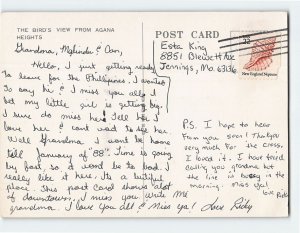 THE BIRD'S VIEW FROM AGANA
HEIGHTS
POST CARD
22
New England Neptune
Esta King
8851
Jennings, Mo. 63136
Grandma, Melinda & Dan,
Hello, I just getting ready
to leave for the Phillipines. I wanted
to say hi & I miss you all. I
bet my little girl is getting big.
I sure do miss her. Tell her I
love her & cant wait to see her.
Well Grandma I wont be home
till January of 88. Time is going
by fast, so it wont be to bad. I
really like it here. Its a beautiful
place. This post card shows alot
of downtown. I miss you. Write me
grandma. I love you all & Miss ya! Love Ricky
P.S. I hope to hear
from you soon! Thank you
very much for the cross,
I loved it. I have tried
calling you grandma but
the line is busy in the
morning. Miss ya!
Love Ricky